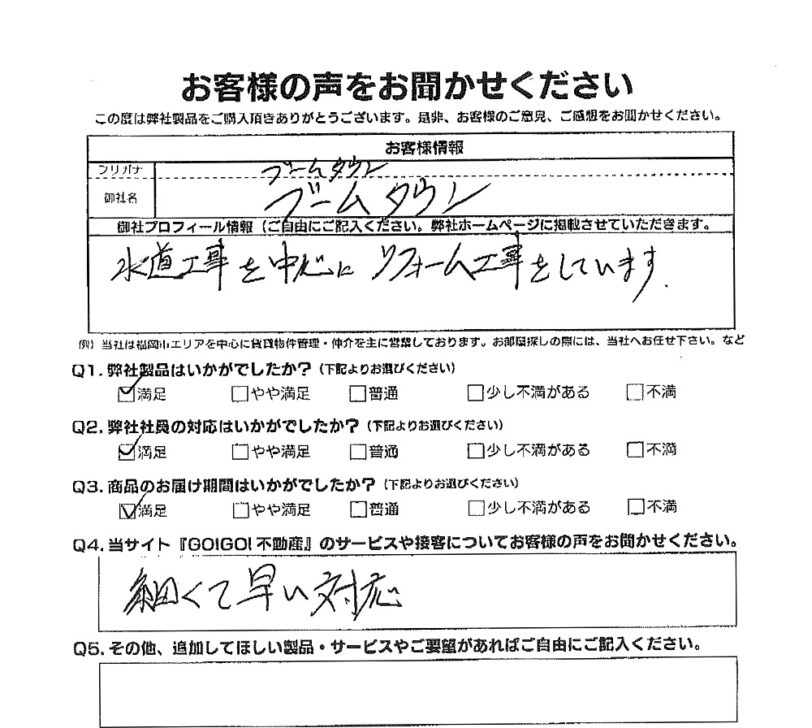 お客様の声をお聞かせください
この度は弊社製品をご購入頂きありがとうございます。是非、お客様のご意見、ご感想をお聞かせください。
お客様情報
フリガナ ブームタウン
御社名 ブームタウン
御社プロフィール情報（ご自由にご記入ください。弊社ホームページに掲載させていただきます。
水道工事を中心に リフォーム工事をしています.
例）当社は福岡市エリアを中心に賃貸物件管理・仲介を主に営業しております。お部屋探しの際には、当社へお任せ下さい。など
Q1. 弊社製品はいかがでしたか？（下記よりお選びください）
☑満足 □やや満足 □普通 □少し不満がある □不満
Q2. 弊社社員の対応はいかがでしたか？（下記よりお選びください）
☑満足 □やや満足 □普通 □少し不満がある □不満
Q3. 商品のお届け期間はいかがでしたか？（下記よりお選びください）
☑満足 □やや満足 □普通 □少し不満がある □不満
Q4. 当サイト『GO!GO! 不動産』のサービスや接客についてお客様の声をお聞かせください。
細くて早い対応
Q5. その他、追加してほしい製品・サービスやご要望があればご自由にご記入ください。